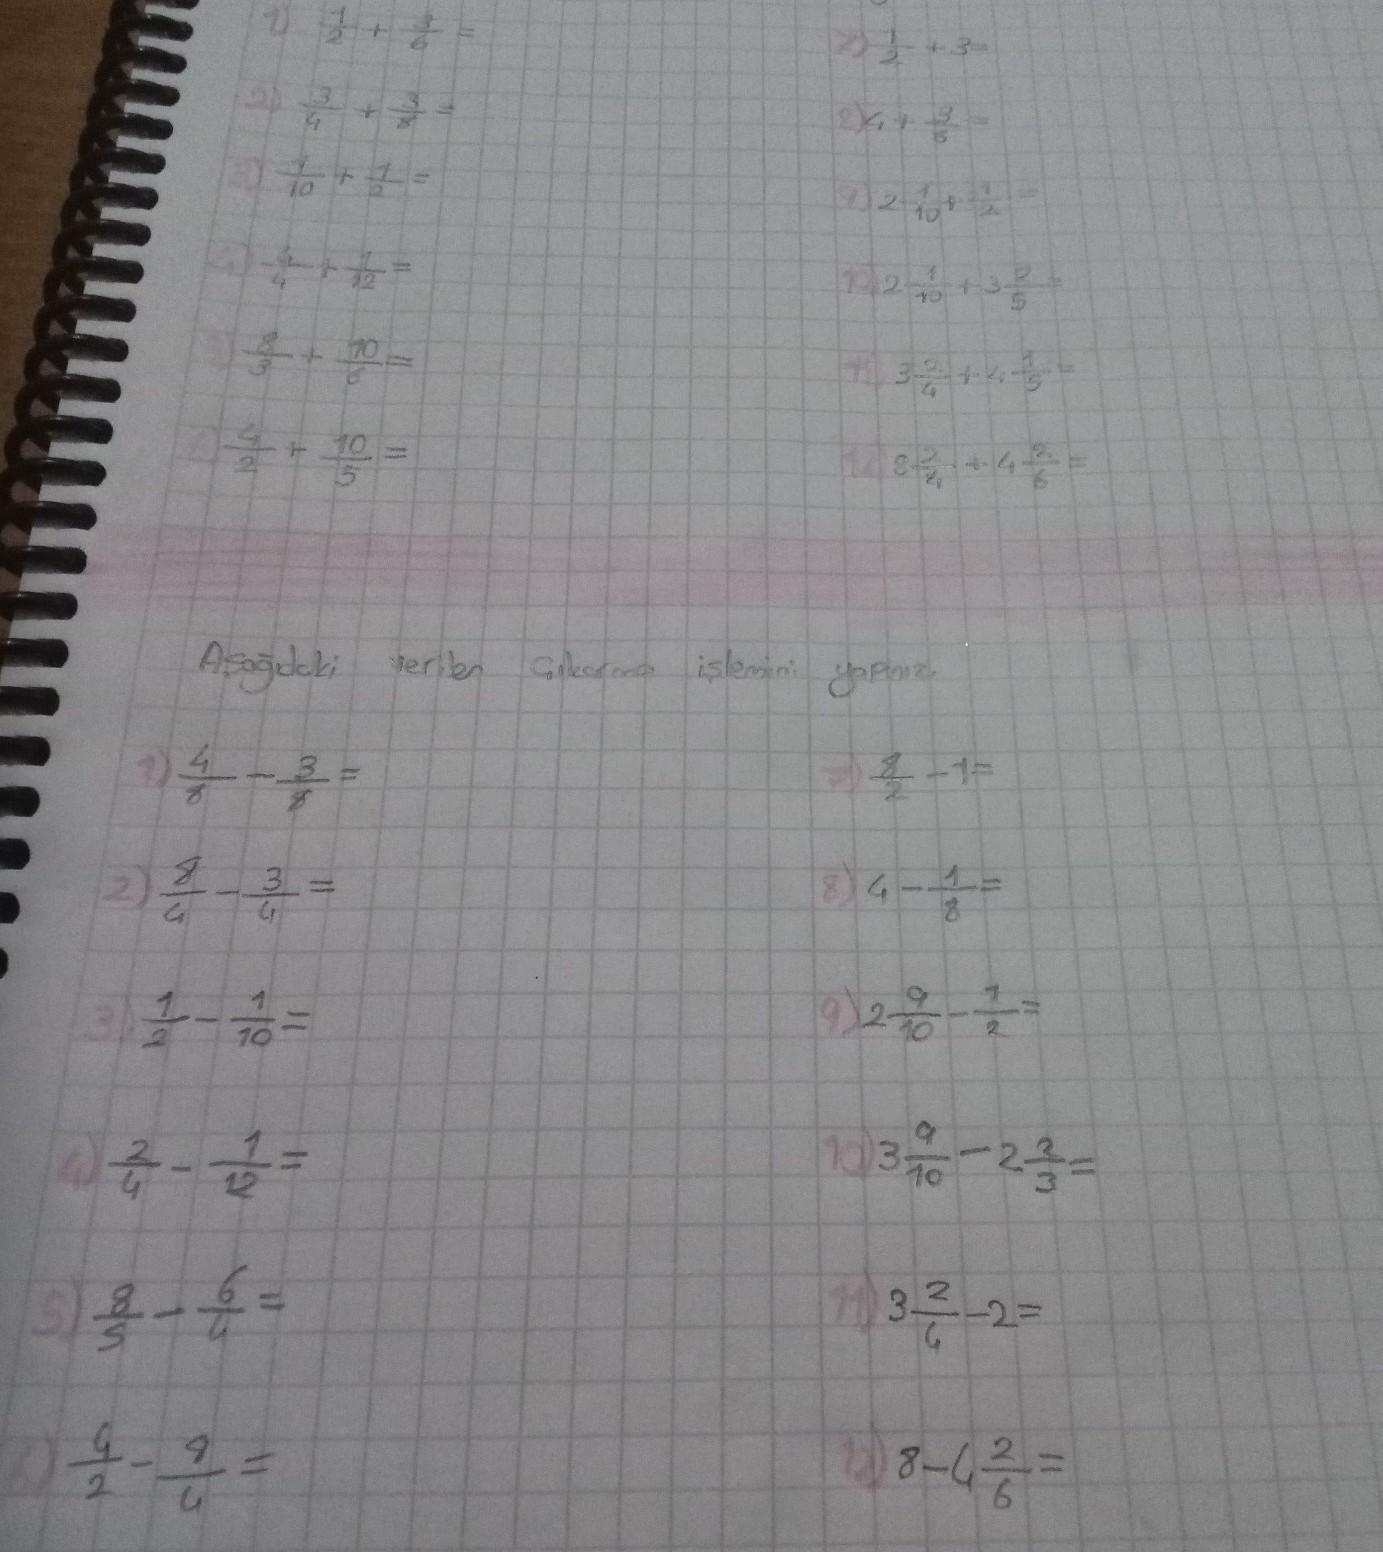 1) 1/2 + /6 =
7) 1/2 + 3 =
2) 3/4 + 3/8 =
8) 4 + 3/6 =
3) 1/10 + 1/2 =
9) 2 1/10 + 1/2 =
4) /4 + 1/12 =
10) 2 1/10 + 3 /5 =
5) 8/ + 10/6 =
11) 3 2/4 + 4 1/5 =
6) 4/2 + 10/5 =
12) 8 2/4 + 4 2/6 =
Aşağıdaki verilen çıkarma işlemini yapınız.
1) 4/8 - 3/8 =
7) 8/2 - 1 =
2) 8/4 - 3/4 =
8) 4 - 1/8 =
3) 1/2 - 1/10 =
9) 2 9/10 - 1/2 =
4) 2/4 - 1/12 =
10) 3 9/10 - 2 2/3 =
5) 8/5 - 6/4 =
11) 3 2/4 - 2 =
6) 4/2 - 8/4 =
12) 8 - 4 2/6 =